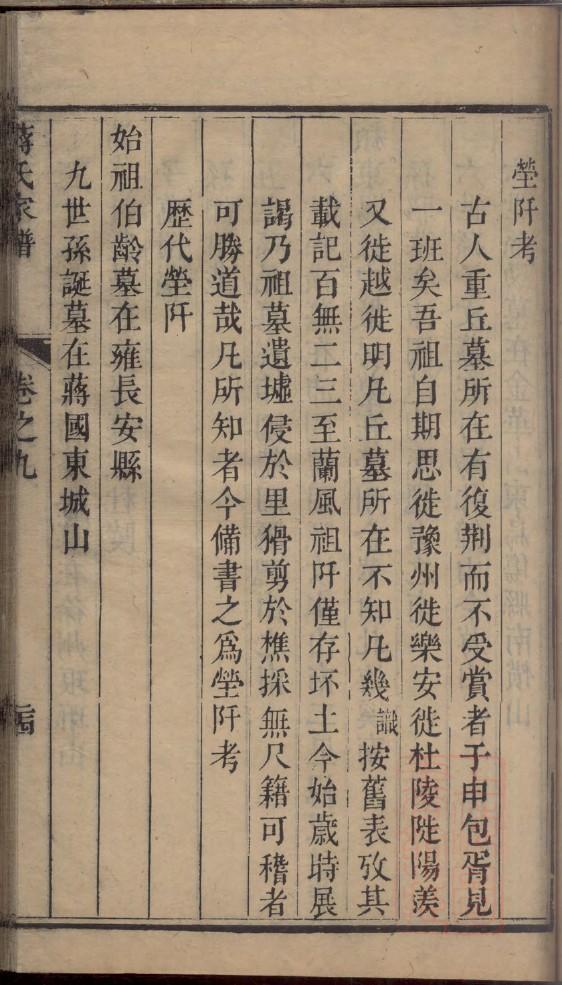 塋阡考
古人重丘墓所在有復荆而不受賞者于申包胥見
一班矣吾祖自期思徙豫州徙樂安徙杜陵徙陽羨
又徙越徙明凡丘墓所在不知凡幾識按舊表攷其
載記百無二三至蘭風祖阡僅存坏土今始歲時展
謁乃祖墓遺墟侵於里猾剪於樵採無尺籍可稽者
可勝道哉凡所知者今備書之爲塋阡考
歷代塋阡
始祖伯齡墓在雍長安縣
九世孫誕墓在蔣國東城山
蔣氏家譜
卷之九